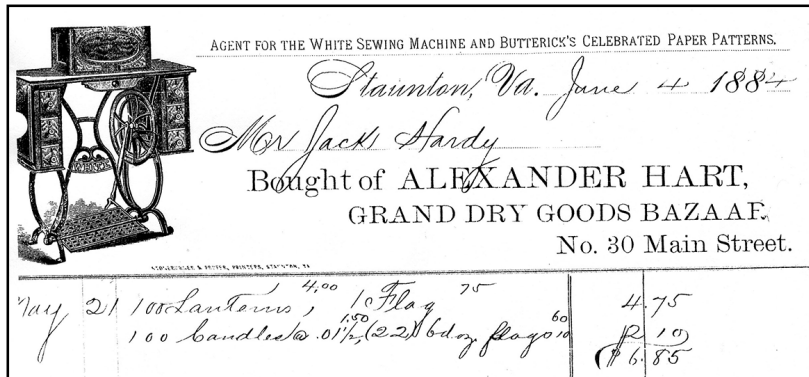 AGENT FOR THE WHITE SEWING MACHINE AND BUTTERICK'S CELEBRATED PAPER PATTERNS.
Staunton, Va. June 4 1884
Mr Jack Hardy
Bought of ALEXANDER HART,
GRAND DRY GOODS BAZAAR,
No. 30 Main Street.
WHITE
PRINTERS, STAUNTON, VA
May 21 100 Lanterns, 4.00 Flag 75 4.75
100 Candles @ .01½, 1.50 6 doz flags 10 60 2 10
$6.85